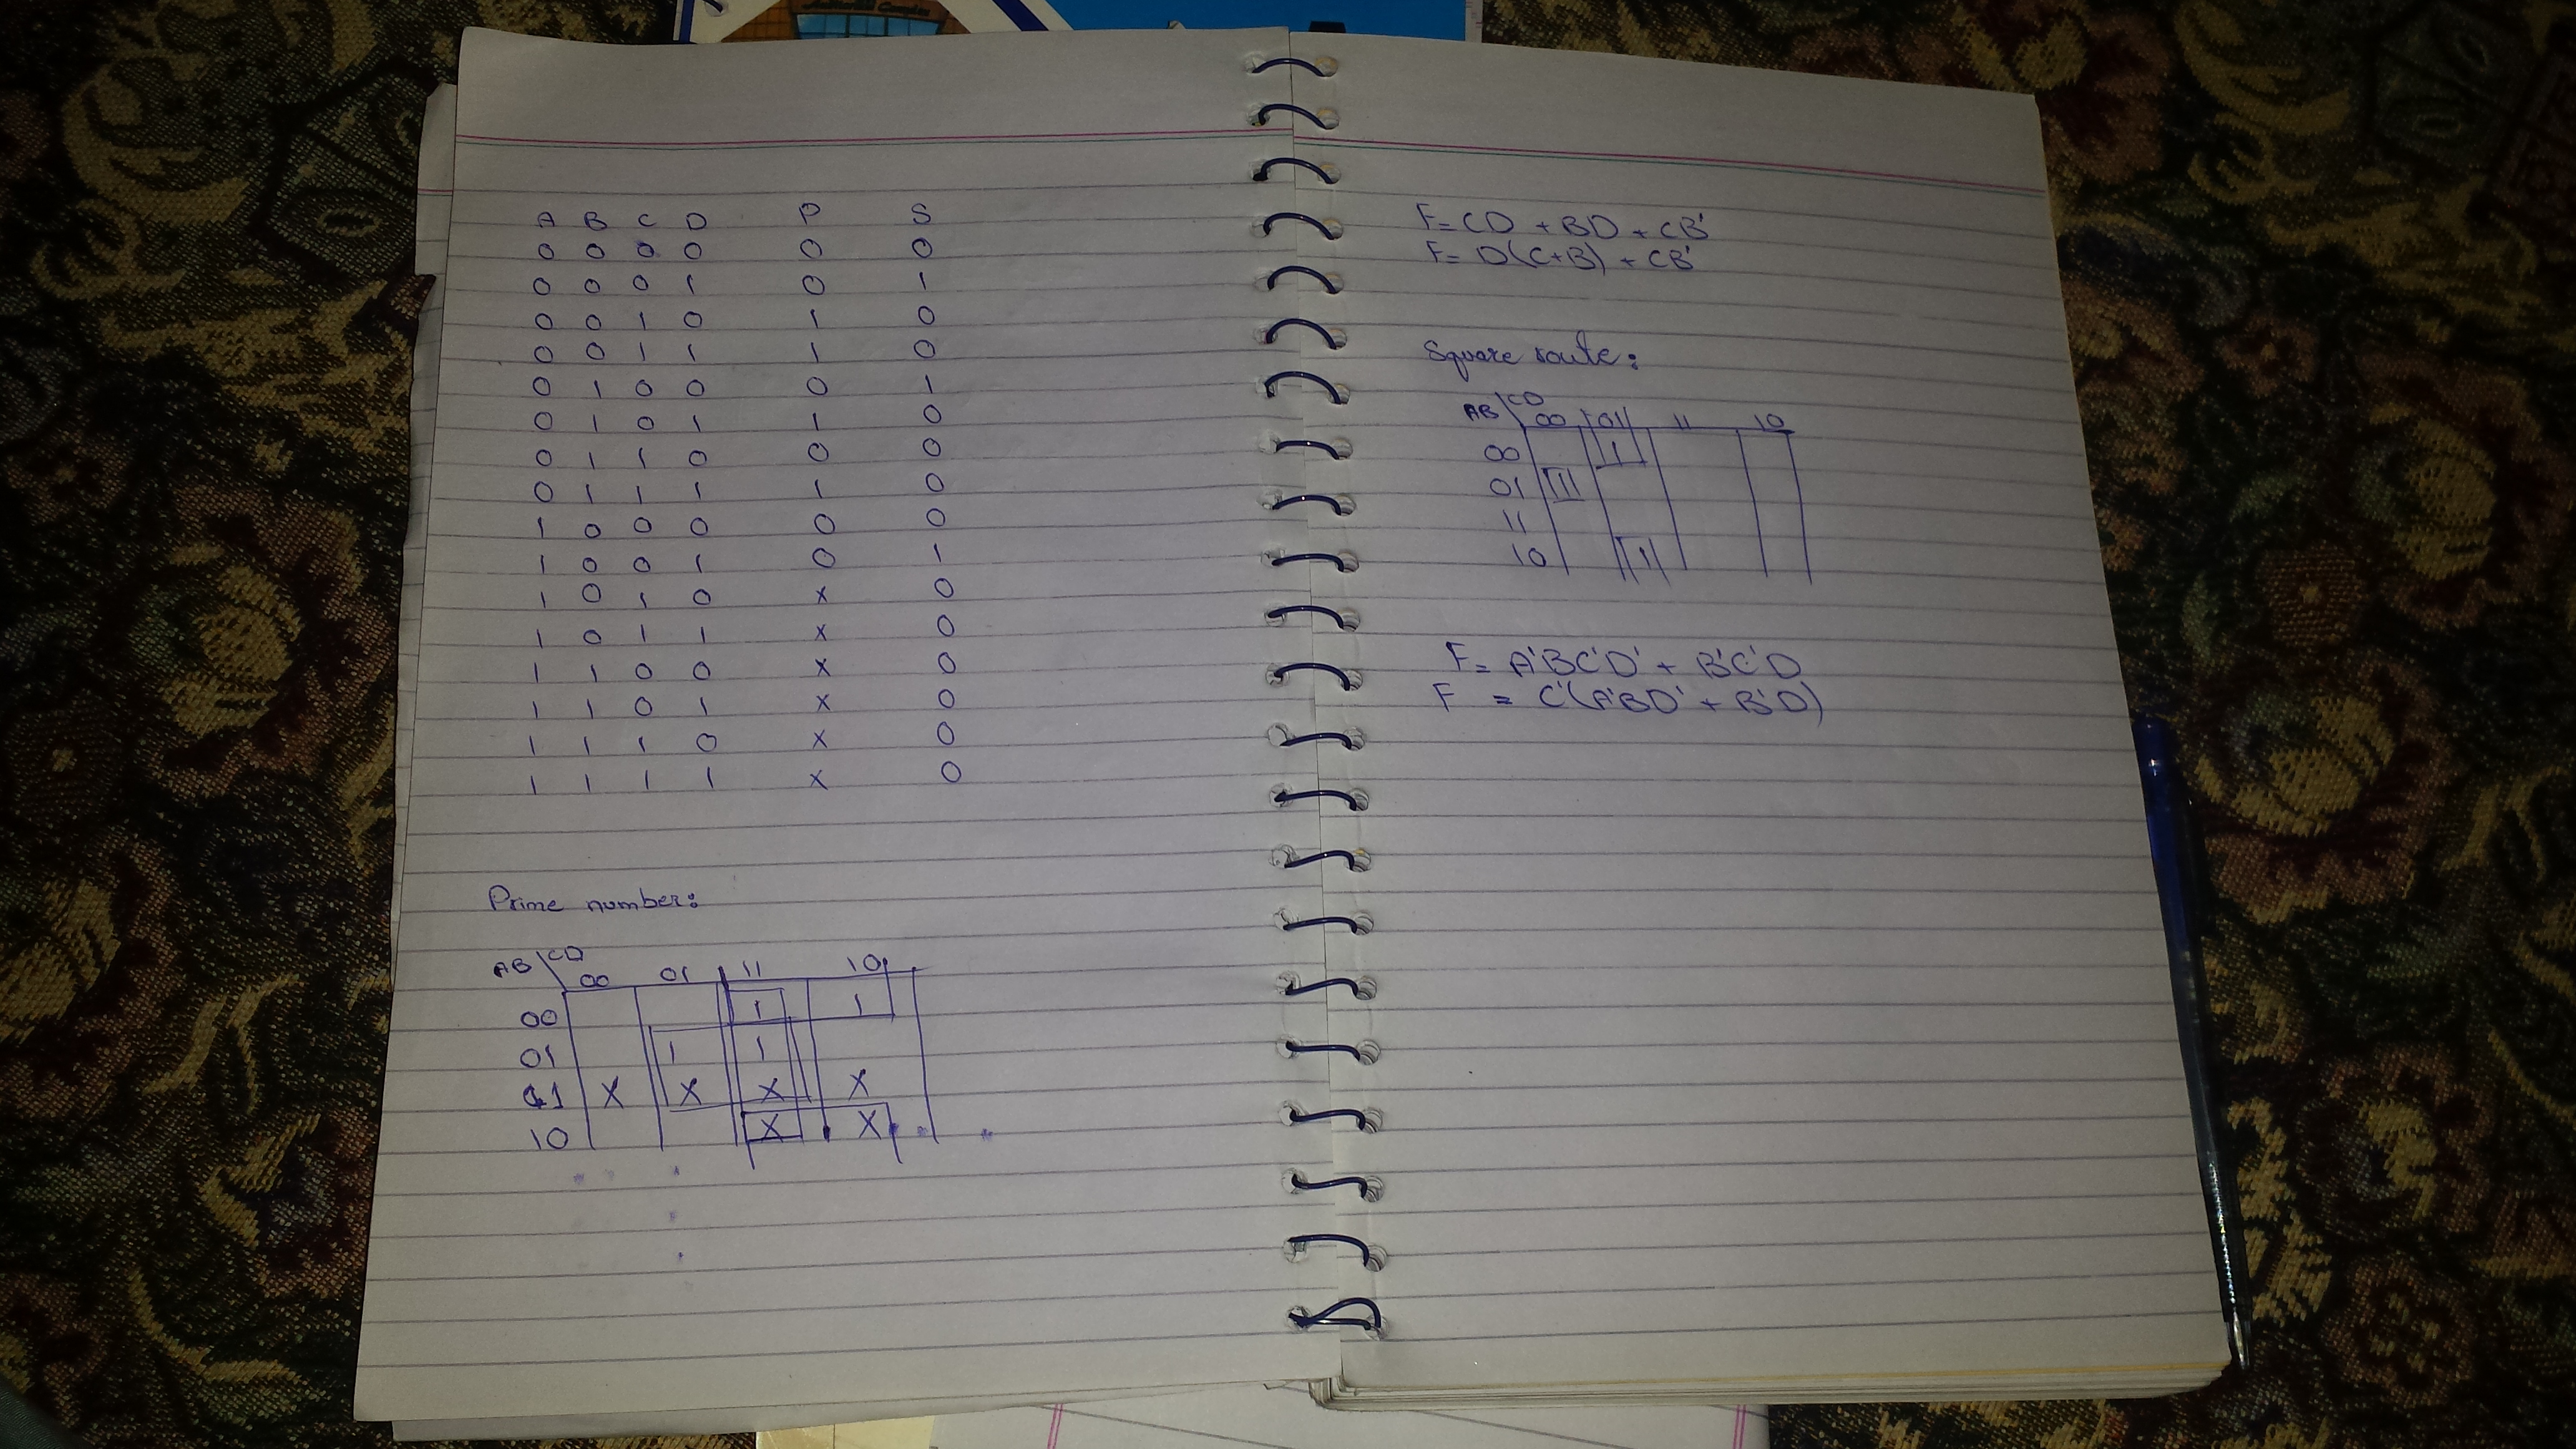 A B C D P S
0 0 0 0 0 0
0 0 0 1 0 1
0 0 1 0 1 0
0 0 1 1 1 0
0 1 0 0 0 1
0 1 0 1 1 0
0 1 1 0 0 0
0 1 1 1 1 0
1 0 0 0 0 0
1 0 0 1 0 1
1 0 1 0 x 0
1 0 1 1 x 0
1 1 0 0 x 0
1 1 0 1 x 0
1 1 1 0 x 0
1 1 1 1 x 0
Prime number:
AB \ CD
00 01 11 10
00 1 1
01 1 1
11 X X X X
10 X X
F = CD + BD + CB'
F = D(C+B) + CB'
Square route:
AB \ CD
00 01 11 10
00 1
01 1
11
10 1
F = A'BC'D' + B'C'D
F = C'(A'BD' + B'D)